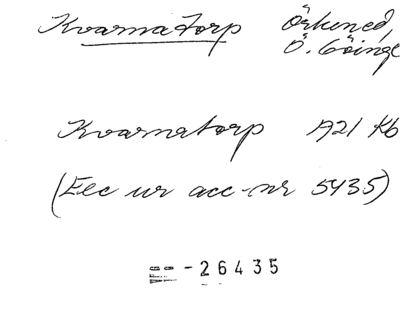 Kvarnatorp Örkened,
Ö. Göinge
Kvarnatorp 1921 Kb
(Exc ur acc-nr 5435)
-26435